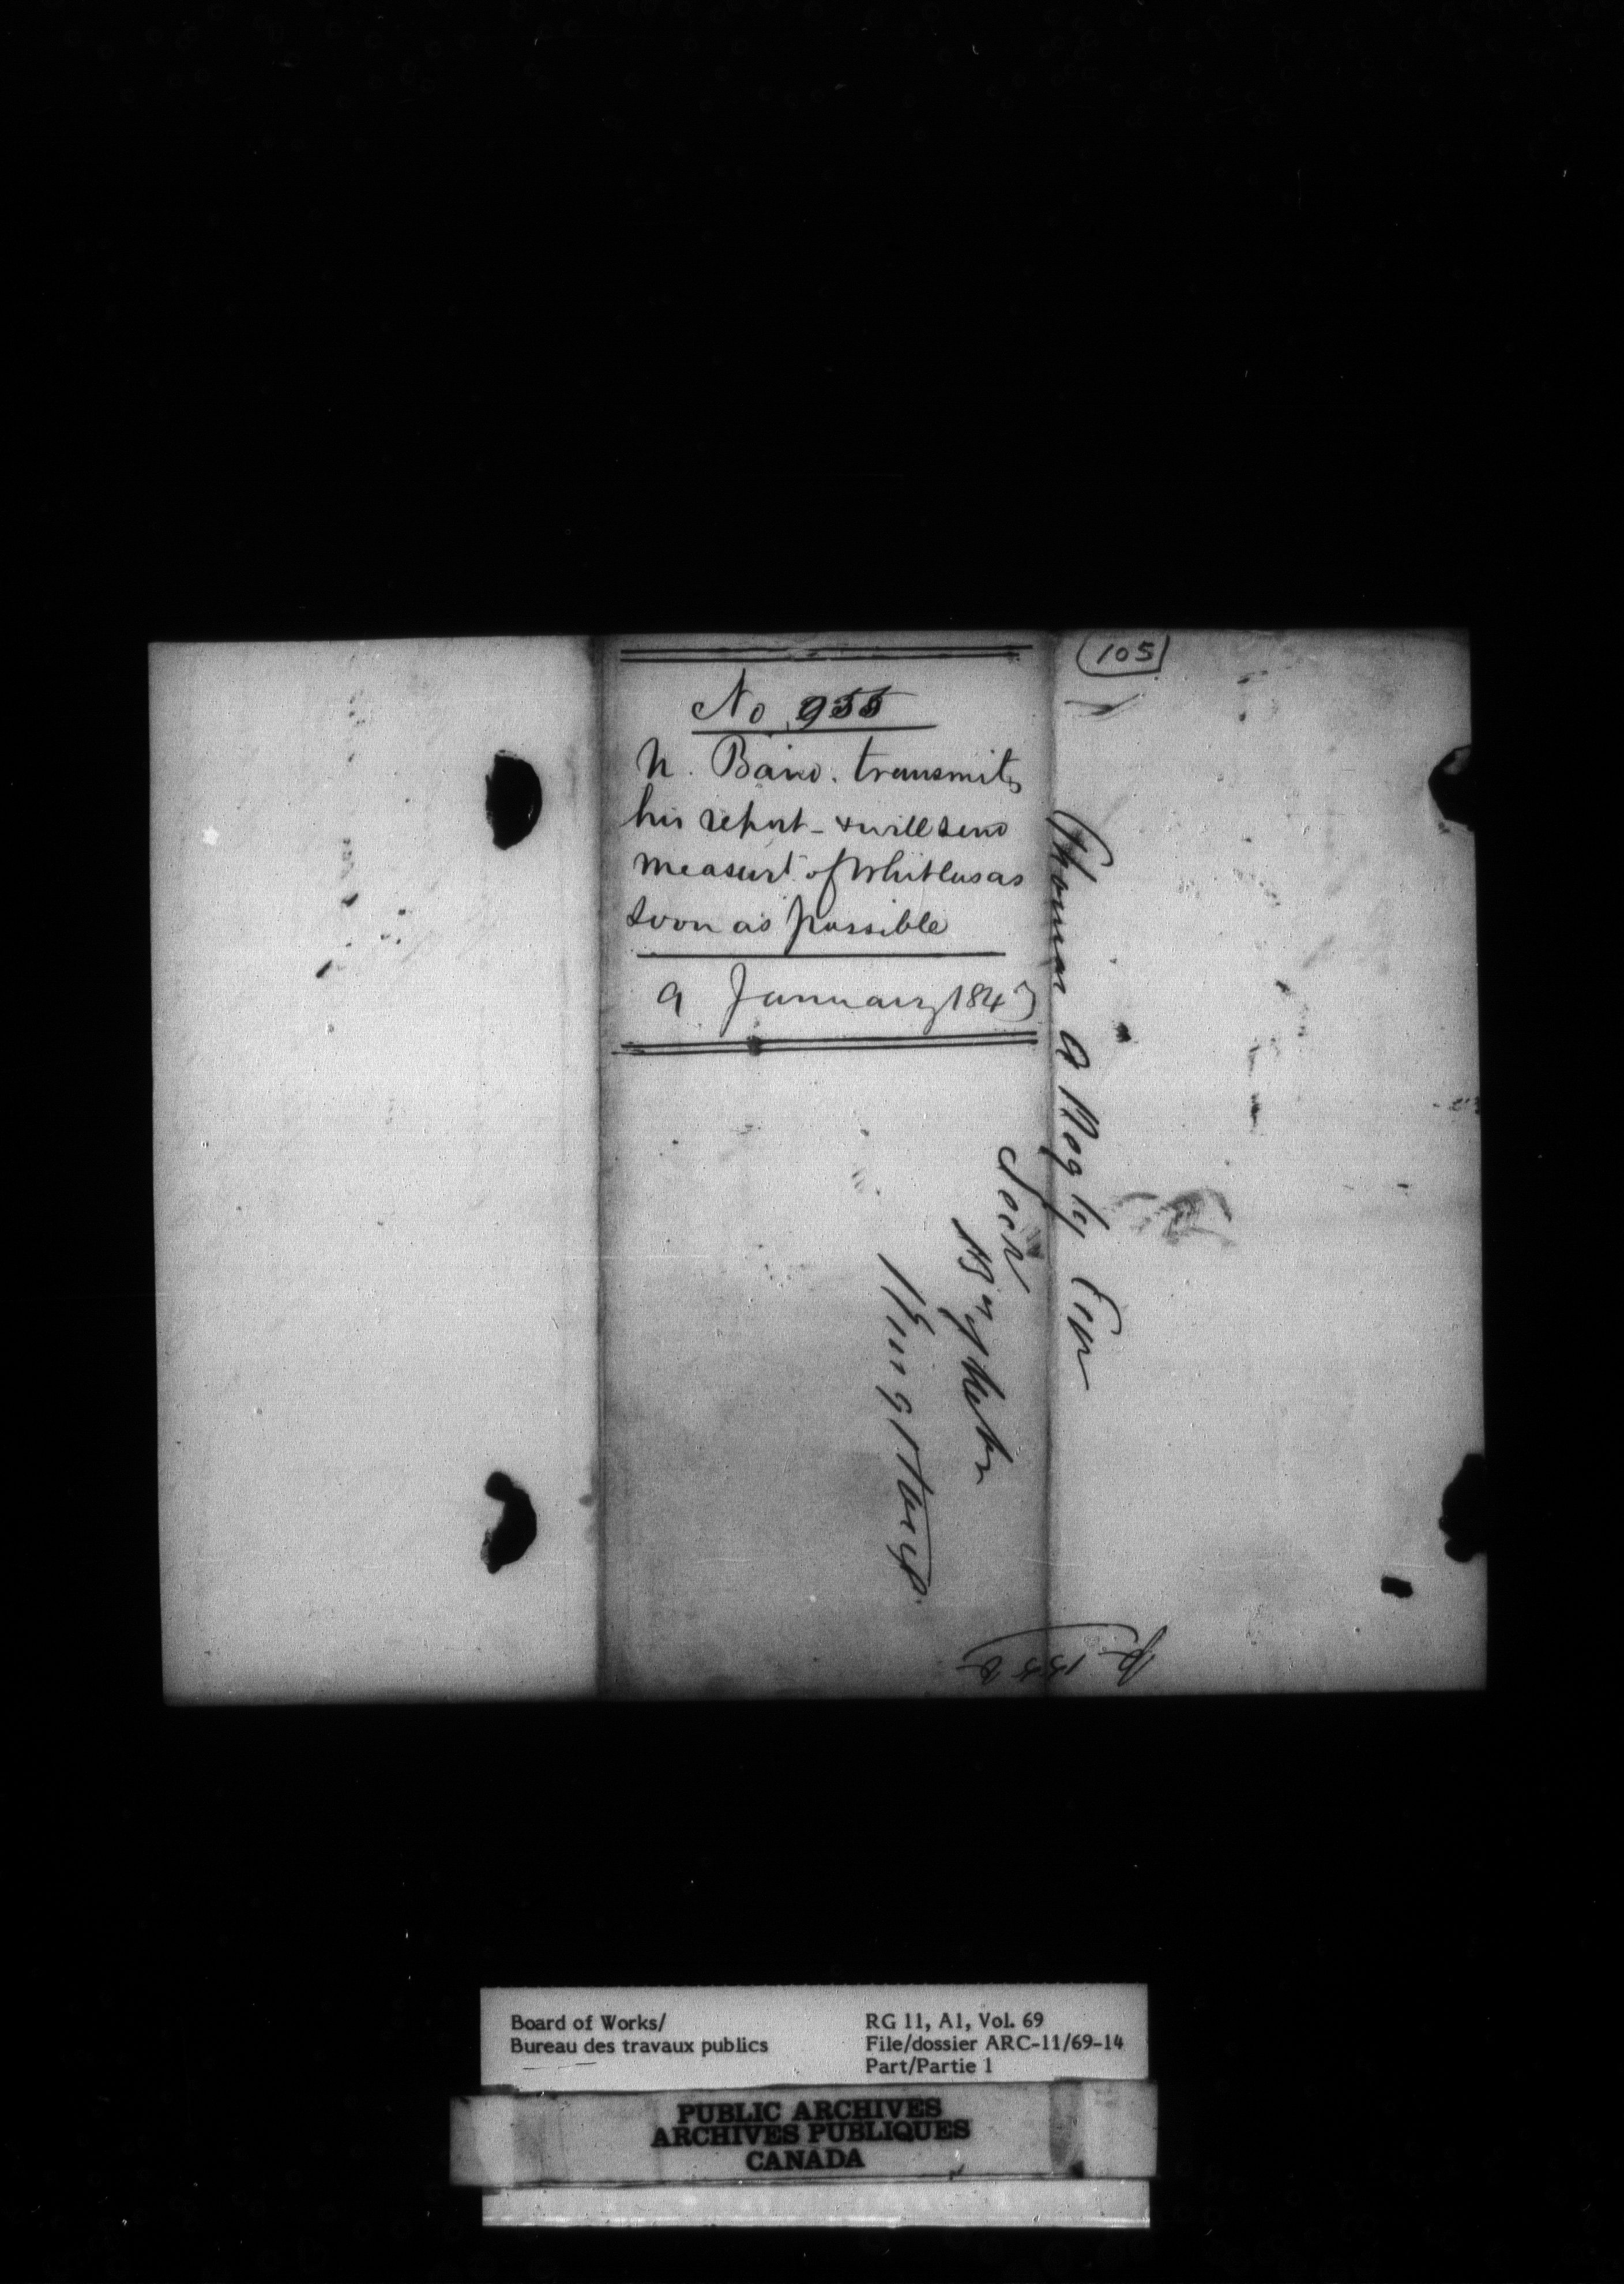 (105)
No 955
N. Baird. transmits
his report - & will send
measurt. of Whitlas as
soon as possible
9 January 1843
Thomas A Begly Esqr
Secy
Bd of Works
Kingston
Board of Works/
Bureau des travaux publics
RG 11, A1, Vol. 69
File/dossier ARC-11/69-14
Part/Partie 1
PUBLIC ARCHIVES
ARCHIVES PUBLIQUES
CANADA